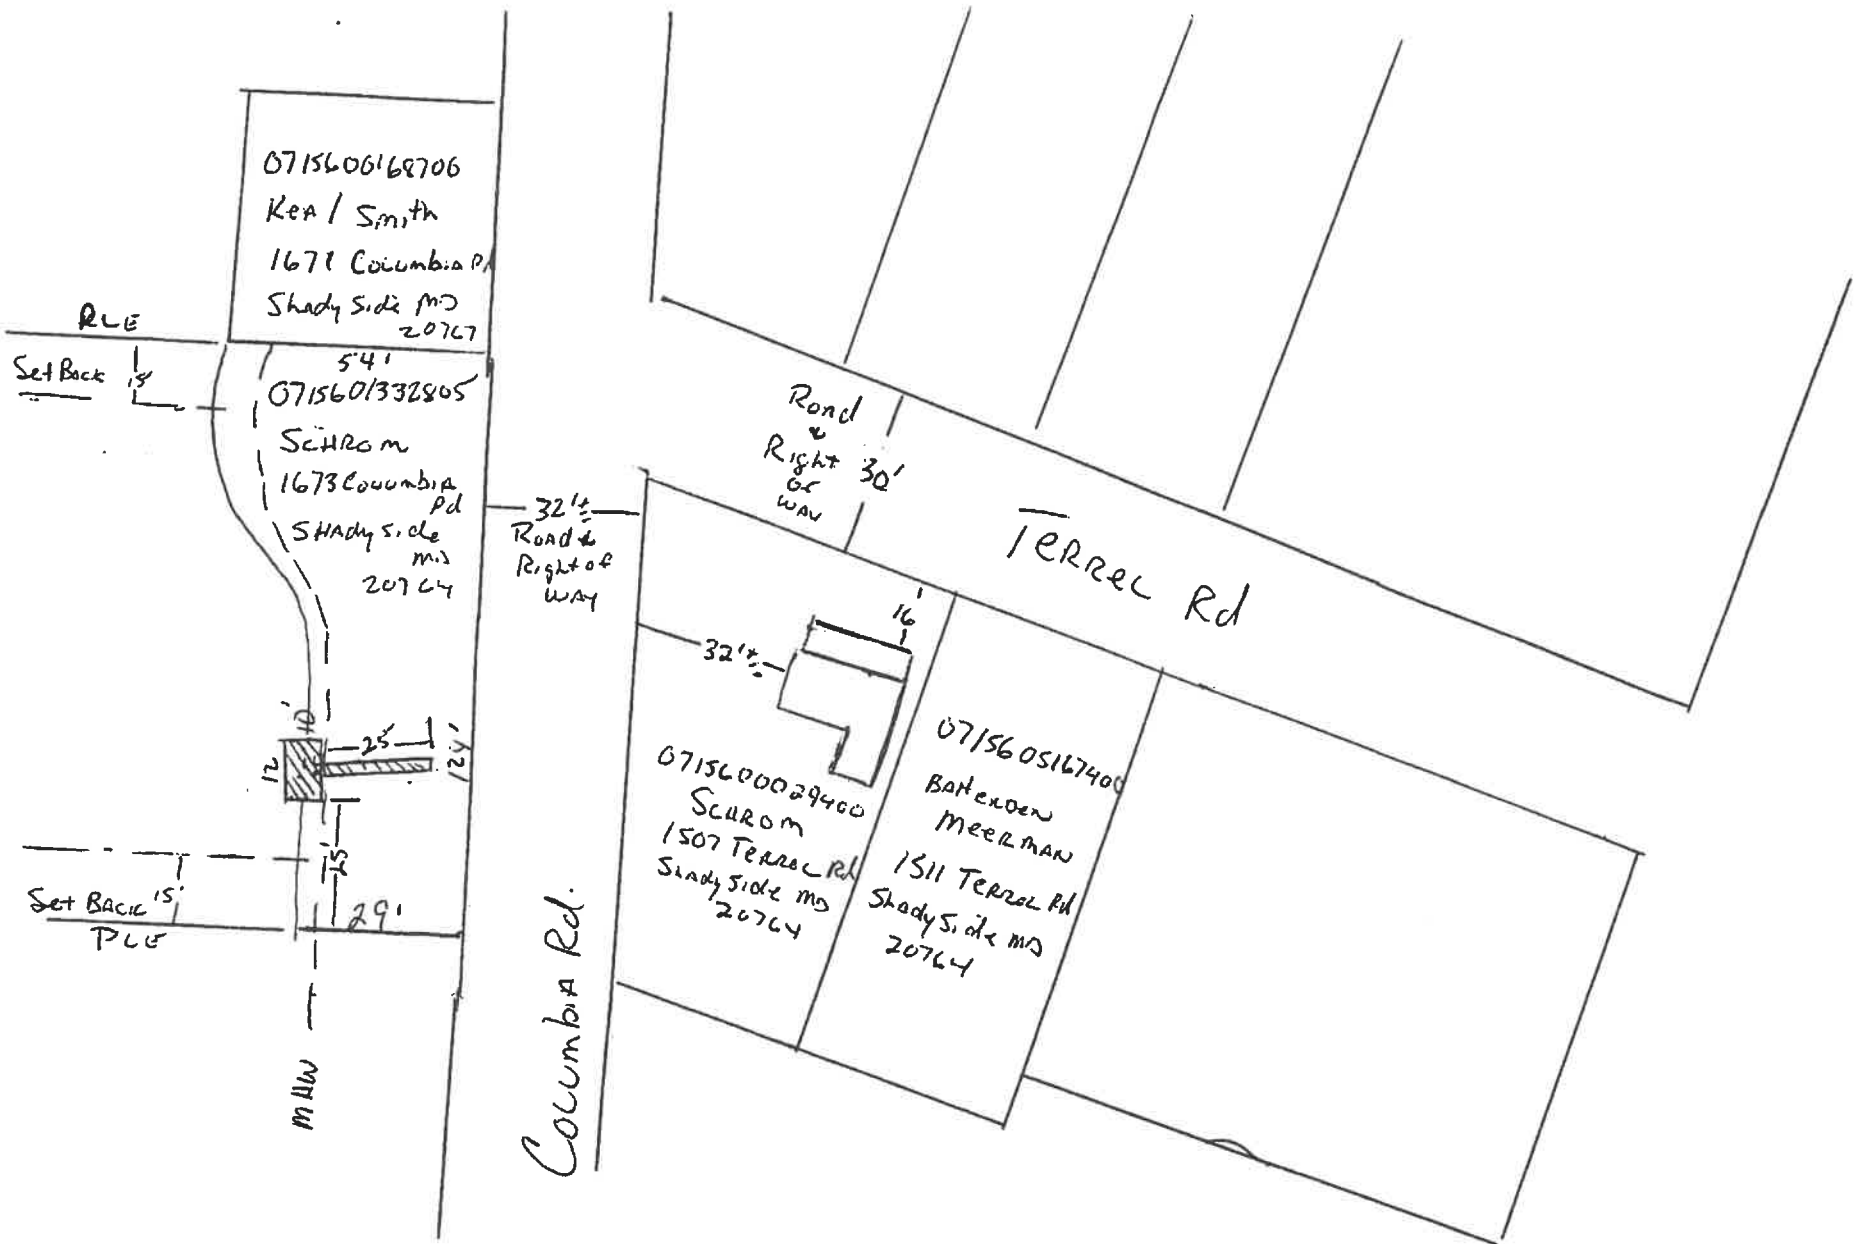 0715600168706
Ken / Smith
1671 Columbia Rd
Shady Side MD
20767
RLE
Set Back 15'
54'
071560/332805
SCHROM
1673 Columbia
Rd
SHady Side
MD
20764
32'±
Road &
Right of
WAY
Road
&
Right
of
WAY
30'
TERREL Rd
16'
32'±
10'
12
25'
124'
25'
Set BACK 15'
PLE
29'
MHW
Columbia Rd.
0715600029400
SCHROM
1507 TERREL Rd
Shady Side MD
20764
0715605167400
MEERMAN
1511 TERREL Rd
Shady Side MD
20764